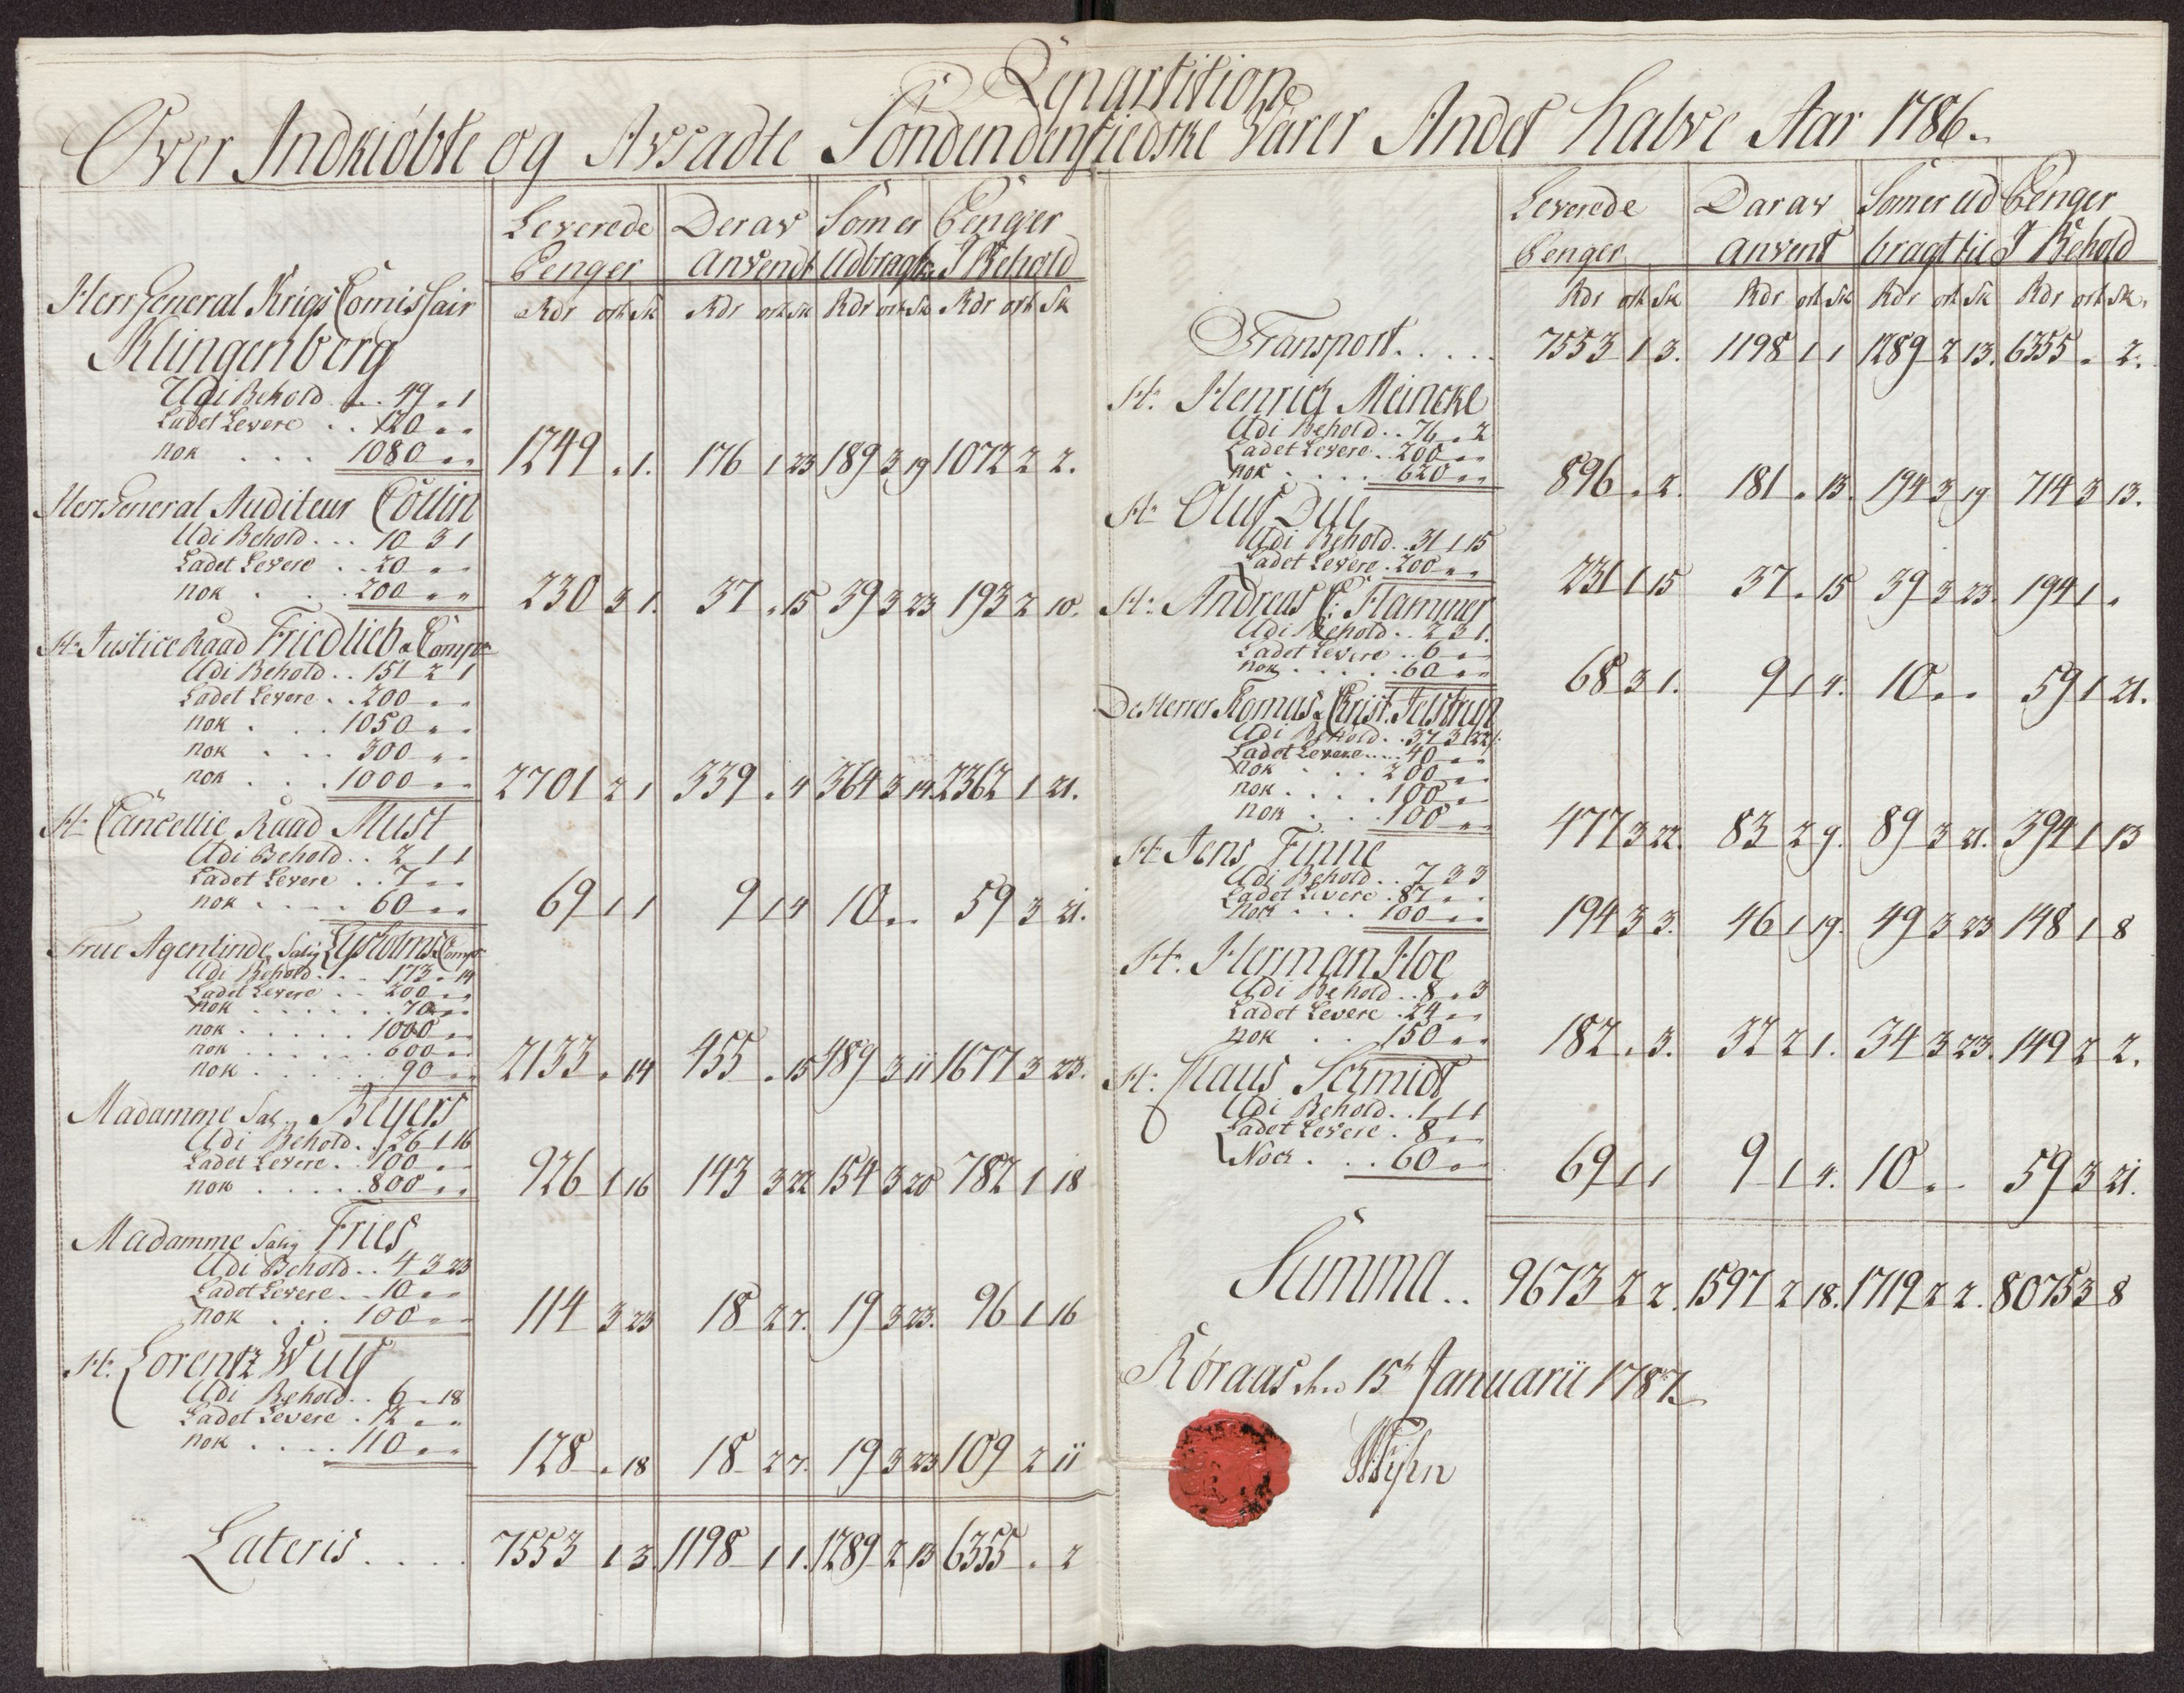 Repartition
Over Indkiöbte og Avsadte Söndendenfieldske Varer Andet halve Aar 1786.
Leverede Penger | Derav Anvendt | Som er Udbragt | Penger I Behold
Rdr ort sk | Rdr ort sk | Rdr ort sk | Rdr ort sk
Herr General Krigs Comissair
Klingenberg
Udi Behold . . 49 . 1
Ladet Levere . . 120 . .
nok . . . 1080 . . 1249 . 1. 176 1 23 189 3 19 1072 2 2.
Herr General Auditeur Collin
Udi Behold . . . 10 3 1
Ladet Levere . . 20 . .
nok . . 200 . . 230 3 1. 37 . 15 39 3 23 193 2 10.
Hr Justice Raad Friedlieb & Comp
Udi Behold . . 151 2 1
Ladet Levere . . 200 . .
nok . . . 1050 . .
nok . . . 300 . .
nok . . . 1000 . . 2701 2 1 339 . 4 364 3 14 2362 1 21.
Hr Cancellie Raad Must
Udi Behold . . 2 1 1
Ladet Levere . . 7 . .
nok . . . . 60 . . 69 1 1 9 1 4 10 . . 59 3 21.
Frue Agentinde Salig Lysholms & Comp
Udi Behold . . . 173 . 14
Ladet Levere . . 200 . .
nok . . . . . 70 . .
nok . . . . . 1000 . .
nok . . . . . 600 . .
nok . . . . . 90 . . 2133 . 14 455 . 15 489 3 11 1677 3 23.
Madamme Sal. Beyers
Udi Behold . . 26 1 16
Ladet Levere . . 100 . .
nok . . . . 800 . . 926 1 16 143 3 22 154 3 20 782 1 18
Madamme Salig Fries
Udi Behold . . 4 3 23
Ladet Levere . . 10 . .
nok . . . 100 . . 114 3 23 18 2 7. 19 3 23. 96 1 16
Hr. Lorentz Wulf
Udi Behold . . 6 . 18
Ladet Levere . 12 . .
nok . . . . 110 . . 128 . 18 18 2 7. 19 3 23 109 2 11
Lateris . . . . 7553 1 3. 1198 1 1. 1289 2 13 6355 . 2
Leverede Penger | Darav anvent | Som er ud bragt til | Penger I Behold
Rdr ort sk | Rdr ort sk | Rdr ort sk | Rdr ort sk.
Transport . . . . . 7553 1 3. 1198 1 1 1289 2 13. 6355 . 2.
Hr. Henrich Meincke
Udi Behold . . 76 . 2
Ladet Levere . 200 . .
nok . . . . 620 . . 896 . 2. 181 . 13. 194 3 19 714 3 13.
Hr Oluf Due
Udi Behold . . 31 1 15
Ladet Levere . 200 . . 231 1 15 37 . 15 39 3 23. 194 1 .
Hr. Andreas C: Hammer
Udi Behold . . 2 3 1.
Ladet Levere . . 6 . .
nok . . . . . 60 . . 68 3 1. 9 1 4. 10 . . 59 1 21.
De Herrer Tomas & Christ. Jelstrup
Udi Behold . . 37 3 22
Ladet Levere . . . 40 . .
nok . . . 200 . .
nok . . . . 100 . .
nok . . . 100 . . 477 3 22. 83 2 9. 89 3 21. 394 1 13
Hr Jens Finne
Udi Behold . . 7 3 3
Ladet Levere . 87 . .
nok . . . 100 . . 194 3 3. 46 1 19. 49 3 23 148 1 8
Hr. Herman Hoe
Udi Behold . . 8 . 3
Ladet Levere . 24 . .
nok . . 150 . . 182 . 3. 32 2 1. 34 3 23. 149 2 2.
Hr. Claus Schmidt
Udi Behold . . 1 1 1
Ladet Levere . 8 . .
Noch . . . 60 . . 69 1 1 9 1 4. 10 . . 59 3 21.
Summa . . 9673 2 2. 1597 2 18. 1719 2 2. 8075 3 8
Röraas den 15t Januarii 1787.